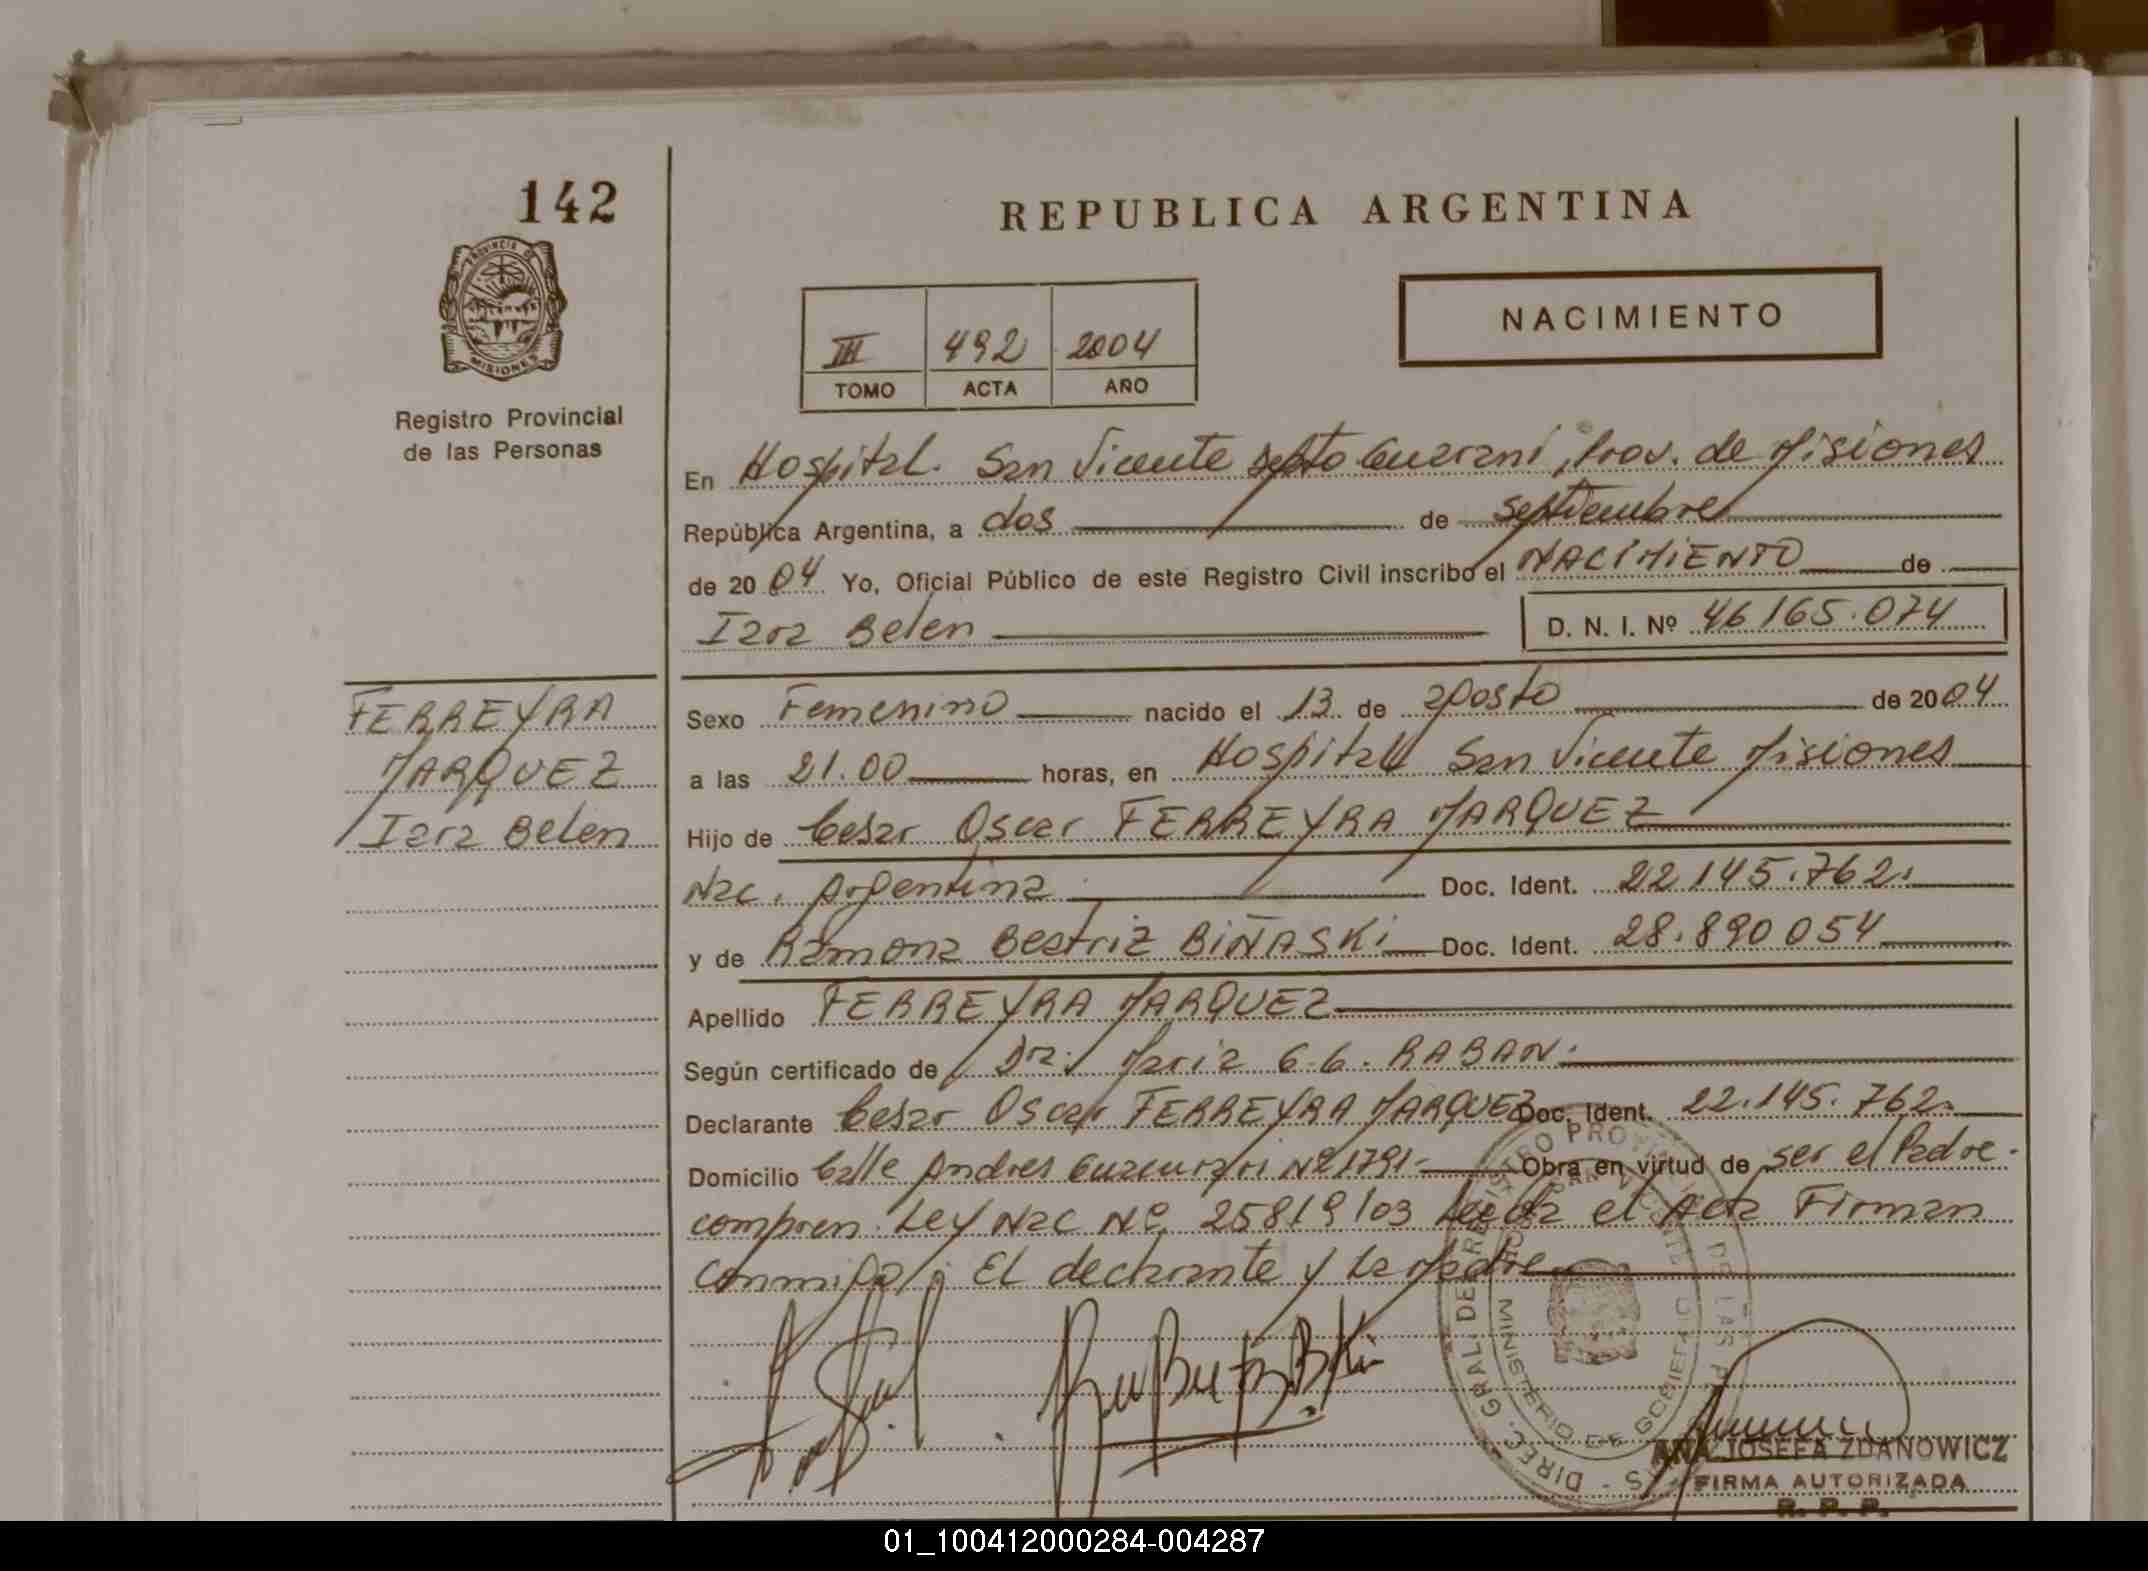 142
REPUBLICA ARGENTINA
PROVINCIA DE
MISIONES
Registro Provincial
de las Personas
NACIMIENTO
III 492 2004
TOMO ACTA AÑO
En Hospital. San Vicente Depto Guarani, Prov. de Misiones
República Argentina, a dos de septiembre
de 2004 Yo, Oficial Público de este Registro Civil inscribo el NACIMIENTO de
Iara Belen D. N. I. Nº 46165.074
FERREYRA
MARQUEZ
Iara Belen
Sexo Femenino nacido el 13 de agosto de 2004
a las 21.00 horas, en Hospital San Vicente Misiones
Hijo de Cesar Oscar FERREYRA MARQUEZ
Nac. Argentina Doc. Ident. 22.145.762.
y de Ramona Beatriz BIÑASKI Doc. Ident. 28.890054
Apellido FERREYRA MARQUEZ
Según certificado de Dra. Maria G.G. RABAN.
Declarante Cesar Oscar FERREYRA MARQUEZ Doc. Ident. 22.145.762.
Domicilio Calle Andres Guacurari Nº 1791- Obra en virtud de ser el Padre.
compren. Ley Nac Nº 25819/03 Leida el Acta Firman
Conmigo; El declarante y la Madre
DIREC. GRAL. DE REGISTRO PROVINCIAL DE LAS
MINISTERIO DE GOBIERNO
ANA JOSEFA ZDANOWICZ
FIRMA AUTORIZADA
R. P. P.
01_100412000284-004287